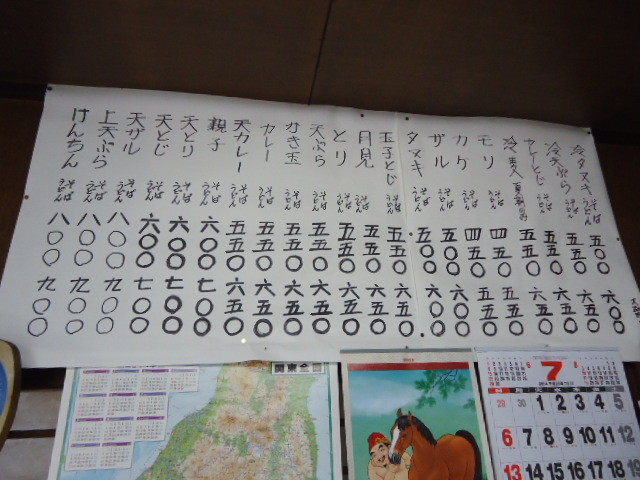 冷タヌキ そば うどん 五〇〇 六〇〇
冷天ぷら そば うどん 五五〇 六五〇
カレーとじ そば うどん 五五〇 六五〇
冷麦 五五〇 六五〇
モリ そば うどん 四五〇 五五〇
カケ そば うどん 四五〇 五五〇
ザル そば うどん 五〇〇 六〇〇
タヌキ そば うどん 五〇〇 六〇〇
玉子とじ そば うどん 五五〇 六五〇
月見 そば うどん 五五〇 六五〇
とり そば うどん 五五〇 六五〇
天ぷら そば うどん 五五〇 六五〇
かき玉 そば うどん 五五〇 六五〇
カレー そば うどん 五五〇 六五〇
天カレー そば うどん 五五〇 六五〇
親子 そば うどん 六〇〇 七〇〇
天とり そば うどん 六〇〇 七〇〇
天とじ そば うどん 六〇〇 七〇〇
天ザル そば うどん 八〇〇 九〇〇
上天ぷら そば うどん 八〇〇 九〇〇
けんちん そば うどん 八〇〇 九〇〇
7
29 30 1 2 3 4 5
6 7 8 9 10 11 12
13 14 15 16 17 18 19